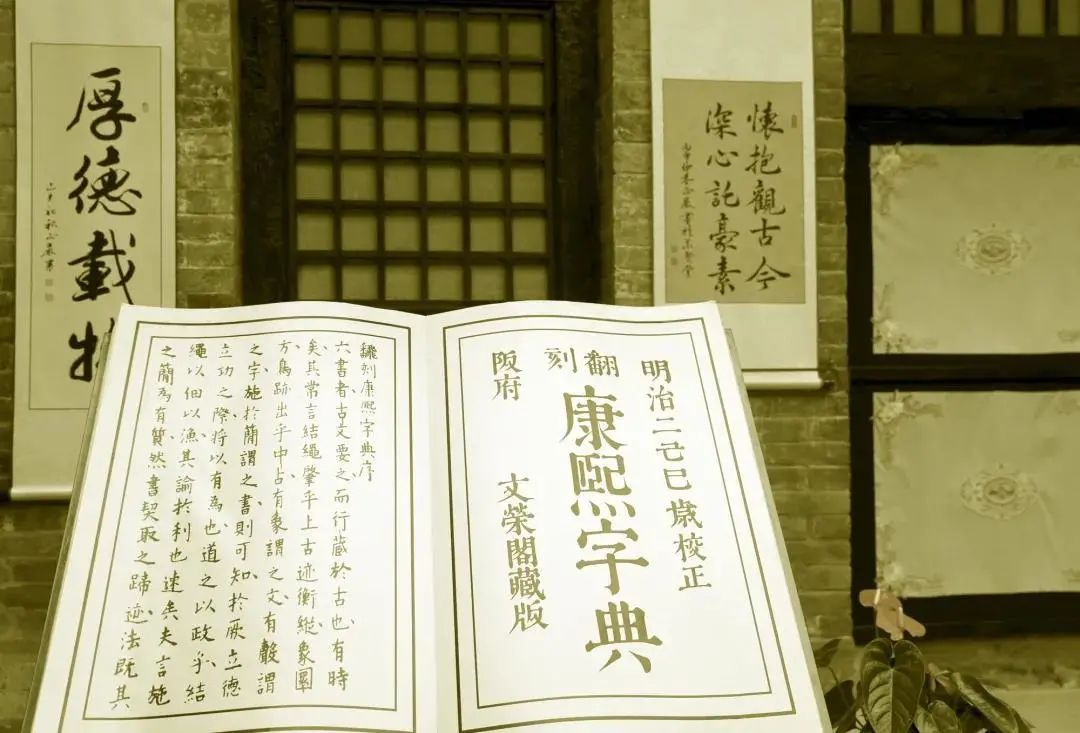 懷抱觀古今
深心託豪素
厚德載物
明治二十己巳歲校正
翻刻
康熙字典
阪府
文榮閣藏版
飜刻康熙字典序
六書者古文要之而行藏於古也有時
矣其常言結繩肇乎上古迹衡縱象圜
方鳥跡出乎中占有象謂之文有聲謂
之字施於簡謂之書則可知於厥立德
立功之際將以有為也道之以政乎結
繩以佃以漁其論於利也速矣夫言施
之簡為有質然書契取之蹄迹法既其